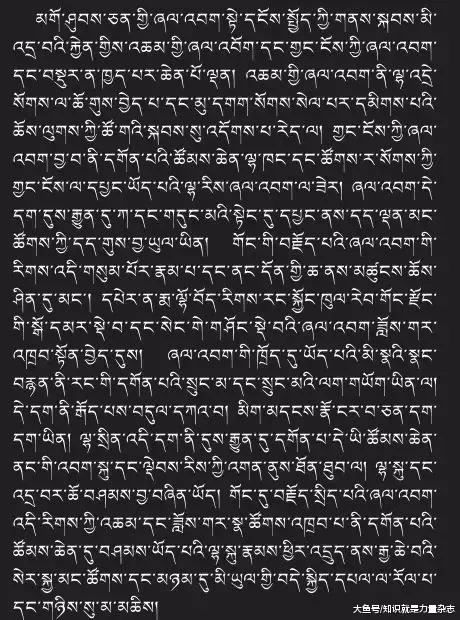 མགོ་ཤུབས་ཅན་གྱི་ཞལ་འབག་སྟེ་དངོས་སྤྱོད་ཀྱི་གནས་སྐབས་མི་
འདྲ་བའི་རྐྱེན་གྱིས་འཆམ་གྱི་ཞལ་འབོག་དང་གྱང་ངོས་ཀྱི་ཞལ་འབག་
དང་བསྡུར་ན་ཁྱད་པར་ཆེན་པོ་ལྡན། འཆམ་གྱི་ཞལ་འབག་ནི་ལྷ་འདྲེ་
སོགས་ལ་ཆོ་གུས་བྱེད་པ་དང་མུ་དགག་སོགས་སེལ་པར་དམིགས་པའི་
ཆོས་ལུགས་ཀྱི་ཚོ་གའི་སྐབས་སུ་འདོགས་པ་རེད་ལ། གྱང་ངོས་ཀྱི་ཞལ་
འབག་བྱ་བ་ནི་དགོན་པའི་ཚོམས་ཆེན་ལྷ་ཁང་དང་ཚོགས་ར་སོགས་ཀྱི་
གྱང་ངོས་ལ་དཔྱང་ཡོད་པའི་ལྷ་རིས་ཞལ་འབག་ལ་ཟེར། ཞལ་འབག་དེ་
དག་དུས་རྒྱུན་དུ་ཀ་དང་གདུང་མའི་སྟེང་དུ་དཔྱང་ནས་དད་ལྡན་མང་
ཚོགས་ཀྱི་དད་གུས་བྱ་ཡུལ་ཡིན། གོང་གི་བརྗོད་པའི་ཞལ་འབག་གི་
རིགས་འདི་གསུམ་པོར་རྣམ་པ་དང་ནང་དོན་གྱི་ཆ་ནས་མཚུངས་ཆོས་
ཤིན་དུ་མང་། དཔེར་ན་རྨ་ལྷོ་བོད་རིགས་རང་སྐྱོང་ཁུལ་རེབ་གོང་རྫོང་
གི་སྒོ་དམར་སྡེ་བ་དང་སེང་གེ་གཤོང་སྡེ་བའི་ཞལ་འབག་ཟློས་གར་
འཁྲབ་སྟོན་བྱེད་དུས། ཞལ་འབག་གི་ཁྲོད་དུ་ཡོད་པའི་མི་སྣའི་སྣང་
བརྙན་ནི་རང་གི་དགོན་པའི་སྲུང་མ་དང་སྲུང་མའི་ལག་གཡོག་ཡིན་ལ།
དེ་དག་ནི་རྒོད་པས་བདུལ་དཀའ་བ། མིག་མདངས་རྣོ་ངར་བ་ཅན་དག་
དག་ཡིན། ལྷ་སྲིན་འདི་དག་ནི་དུས་རྒྱུན་དུ་དགོན་པ་དེ་ཡི་ཚོམས་ཆེན་
ནང་གི་འབག་སྐུ་དང་ལྡེབས་རིས་ཀྱི་འགན་ནུས་ཐོན་ཐུབ་ལ། ལྷ་སྐུ་དང་
འདྲ་བར་ཆོ་བཤམས་བྱ་བཞིན་ཡོད། གོང་དུ་བརྗོད་སྲིད་པའི་ཞལ་འབག་
འདི་རིགས་ཀྱི་འཆམ་དང་ཟློས་གར་སྣ་ཚོགས་འཁྲབ་པ་ནི་དགོན་པའི་
ཚོམས་ཆེན་དུ་བཤམས་ཡོད་པའི་ལྷ་སྐུ་རྣམས་ཕྱིར་འདྲུད་ནས་རྒྱ་ཆེ་བའི་
སེར་སྐྱ་མང་ཚོགས་དང་མཉམ་དུ་མི་ཡུལ་གྱི་བདེ་སྐྱིད་དཔལ་ལ་རོལ་པ་
དང་གཉིས་སུ་མ་མཆིས།
大鱼号/知识就是力量杂志